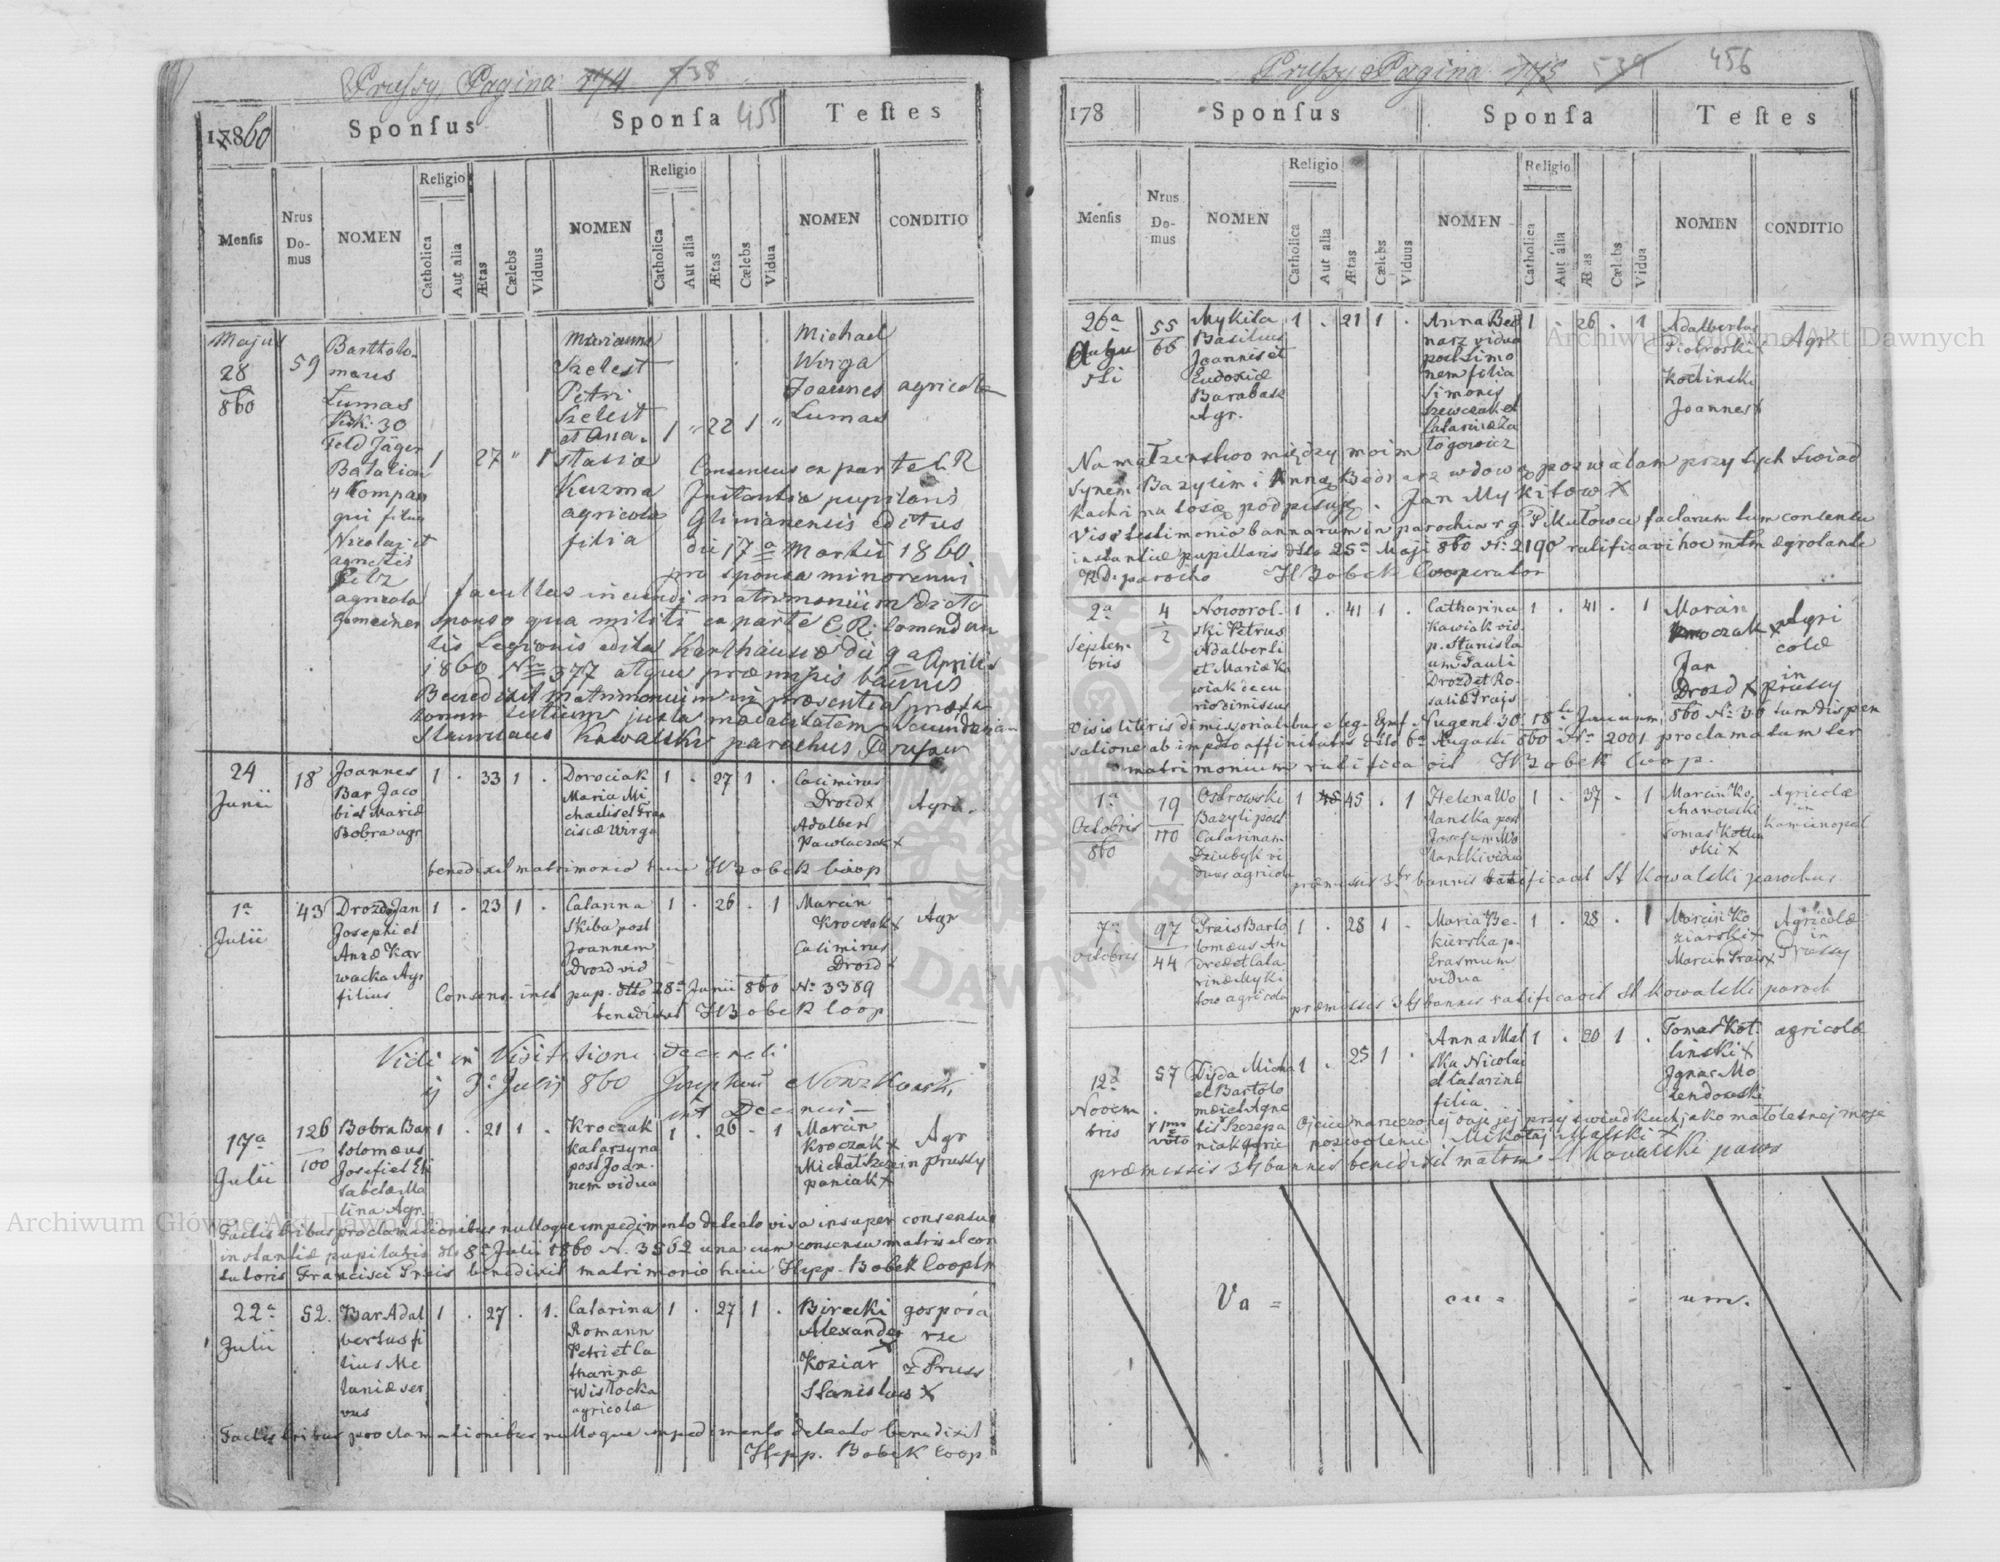 Prussy Pagina 174 538
455
17860 Sponsus Sponsa Testes
Mensis Nrus Domus NOMEN Religio Catholica Aut alia Ætas Cælebs Viduus NOMEN Religio Catholica Aut alia Ætas Cælebs Vidua NOMEN CONDITIO
Majus
28
860
59
Bartholo-
maeus
Lumas
30
Feld Jäger
Batalion
4 Compan
qui filius
Nicolai et
agnetis
agricola
gemeiner
1 27 " 1
Marianna
Szelest
Petri
Szelest
et Ana-
stasia
Kuzma
agricola
filia
1 " 22 1 "
Michael
Wirga
Joannes
Lumas
agricola
Consensus ex parte C. R.
Instantia pupilaris
Glinianensis editus
die 17a Martii 1860
pro sponsa minorenni
facultas ineundi matrimonium dicto
sponso qua militi ex parte C. R. Comendan
tis Legionis edita Karthausae die 9a Aprilis
1860 Nro 377 atque praemissis bannis
Benedixit matrimonium in praesentia praefa
torum testium
Stanislaus Kowalski parochus Prusow
24
Junii
18
Joannes
Bar Jaco
bi et Mariæ
Bobra agr
1 . 33 1 .
Dorociak
Maria Mi
chaelis et Fran
ciscæ Wirga
1 . 27 1 .
Casimirus
Drozd x
Adalbert
Pawlaczek x
Agric.
benedixit matrimonio huic H Bobek Coop
1a
Julii
43
Drozd Jan
Josephi et
Annæ Kar
wacka Agr
filius
1 . 23 1 .
Catarina
Skiba post
Joannem
Drozd vid
1 . 26 . 1
Marcin
Kroczak x
Casimirus
Drozd x
Agr
Consens. inst pup. dtto 28a Junii 860 No 3389
benedixit H Bobek Coop
Vidi in Visitatione Decanali
3a Julij 860 Josephus
Decanus
17a
Julii
126
100
Bobra Bar
tolomeus
Josefi et Eli
sabetæ Ma
lina Agr.
1 . 21 1 .
Kroczak
Katarzyna
post Joan-
nem vidua
1 . 26 . 1
Marcin
Kroczak x
Michał Szcze
paniak x
Agr
in Prussy
Factis tribus proclamationibus nulloque impedimento detecto visa insuper consensu
instantiæ pupilaris dto 8a Julii 1860 N. 3562 una cum consensu matris et con
tutoris Francisci Prais benedixit matrimonio huic Hipp. Bobek Cooptr
22a
Julii
52.
Bar Adal
bertus fi
lius Me
laniæ ser
vus
1 . 27 . 1.
Catarina
Romann
Petri et Ca
tharinæ
Wisłocka
agricolæ
1 . 27 1 .
Birecki
Alexander
x
Koziar
Stanislaus x
gospoda
rze
z Pruss
Factis tribus proclamationibus nulloque impedimento detecto benedixit
Hipp. Bobek Coop
Prussy Pagina 175 539 456
178 Sponsus Sponsa Testes
Mensis Nrus Domus NOMEN Religio Catholica Aut alia Ætas Cælebs Viduus NOMEN Religio Catholica Aut alia Æ as Cælebs Vidua NOMEN CONDITIO
26a
Augu
sti
55
66
Mykita
Basilius
Joannis et
Eudoxiæ
Barabasz
Agr.
1 . 21 1 .
Anna Bed
narz vidua
post Simo
nem filia
Simonis
Szewczak et
Catarinæ Za
łogowicz
1 . 26 . 1
Adalbertus
Piotroski
Kotlinski
Joannes x
Agr
Na małzenstwo między moim
synem Bazylim i Anną Bednarz wdową pozwalam przy tych swiad
kach i na to się podpisuję. Jan Mykitow x
Viso testimonio bannarum in parochia r. g. Pułtowce factarum tum consensu
instantiæ pupillaris dtto 25a Maji 860 No 2190 ratificavi hoc mtm ægrotante
R. D. parocho H Bobek Cooperator
2a
Septem
bris
4
2
Noworol-
ski Petrus
Adalberti
et Mariæ Ko
wiak decu
rio dimissus
1 . 41 1 .
Catharina
Kawiak vid
p. Stanisla
um Pauli
Drozd et Ro-
saliæ Prajs
1 . 41 . 1
Marcin
Kroczak x
Jan
Drozd x
Agri
colæ
in
Prussy
Visis literis dimissorialibus e leg. Nugent 30. 18 860 No 30 tum dispen
satione ab impdto affinitatis dtto 6a Augusti 860 No 2001 proclamatum ter
matrimonium ratificavit H Bobek Coop.
1a
Octobris
860
19
110
Ostrowski
Bazyli post
Catarinam
Dziubyk vi
duus agricola
1 45 . 1
Helena Wo
lanska post
Josefum Wo
lanski vidua
1 . 37 . 1
Marcin Ko
chanowski
Tomas Kotlin
ski x
Agricolæ
in
Kamienopol
præmissis 3br bannis ratificavit St Kowalski parochus.
7a
Octobris
97
44
Prais Barto
lomeus An
dreæ et Cata
rinæ Myki
tow agricola
1 . 28 1 .
Maria Be-
kierska p.
Erasmum
vidua
1 . 28 . 1
Marcin Ko
ziarski x
Marcin Prais x
Agricolæ
in
Prussy
præmissis 3bg bannis ratificavit St Kowalski paroch
12a
Novem
bris
57
Fijda Micha
el Bartolo
mæi et Agne
tis Szczepa
niak agric
1 . 25 1 .
Anna Mal
ska Nicolai
et Catarinæ
filia
1 . 20 1 .
Tomas Kot-
linski x
Ignac Mo
lendowski
agricolæ
Ojciec narzeczonej daje jej przy swiadkach jako małoletnej moje
pozwolenie Mikołaj Malski x
præmissis 3bg bannis benedixit matrm St Kowalski paroo
Va = cu = - um.
Archiwum Główne Akt Dawnych
Archiwum Główne Akt Dawnych